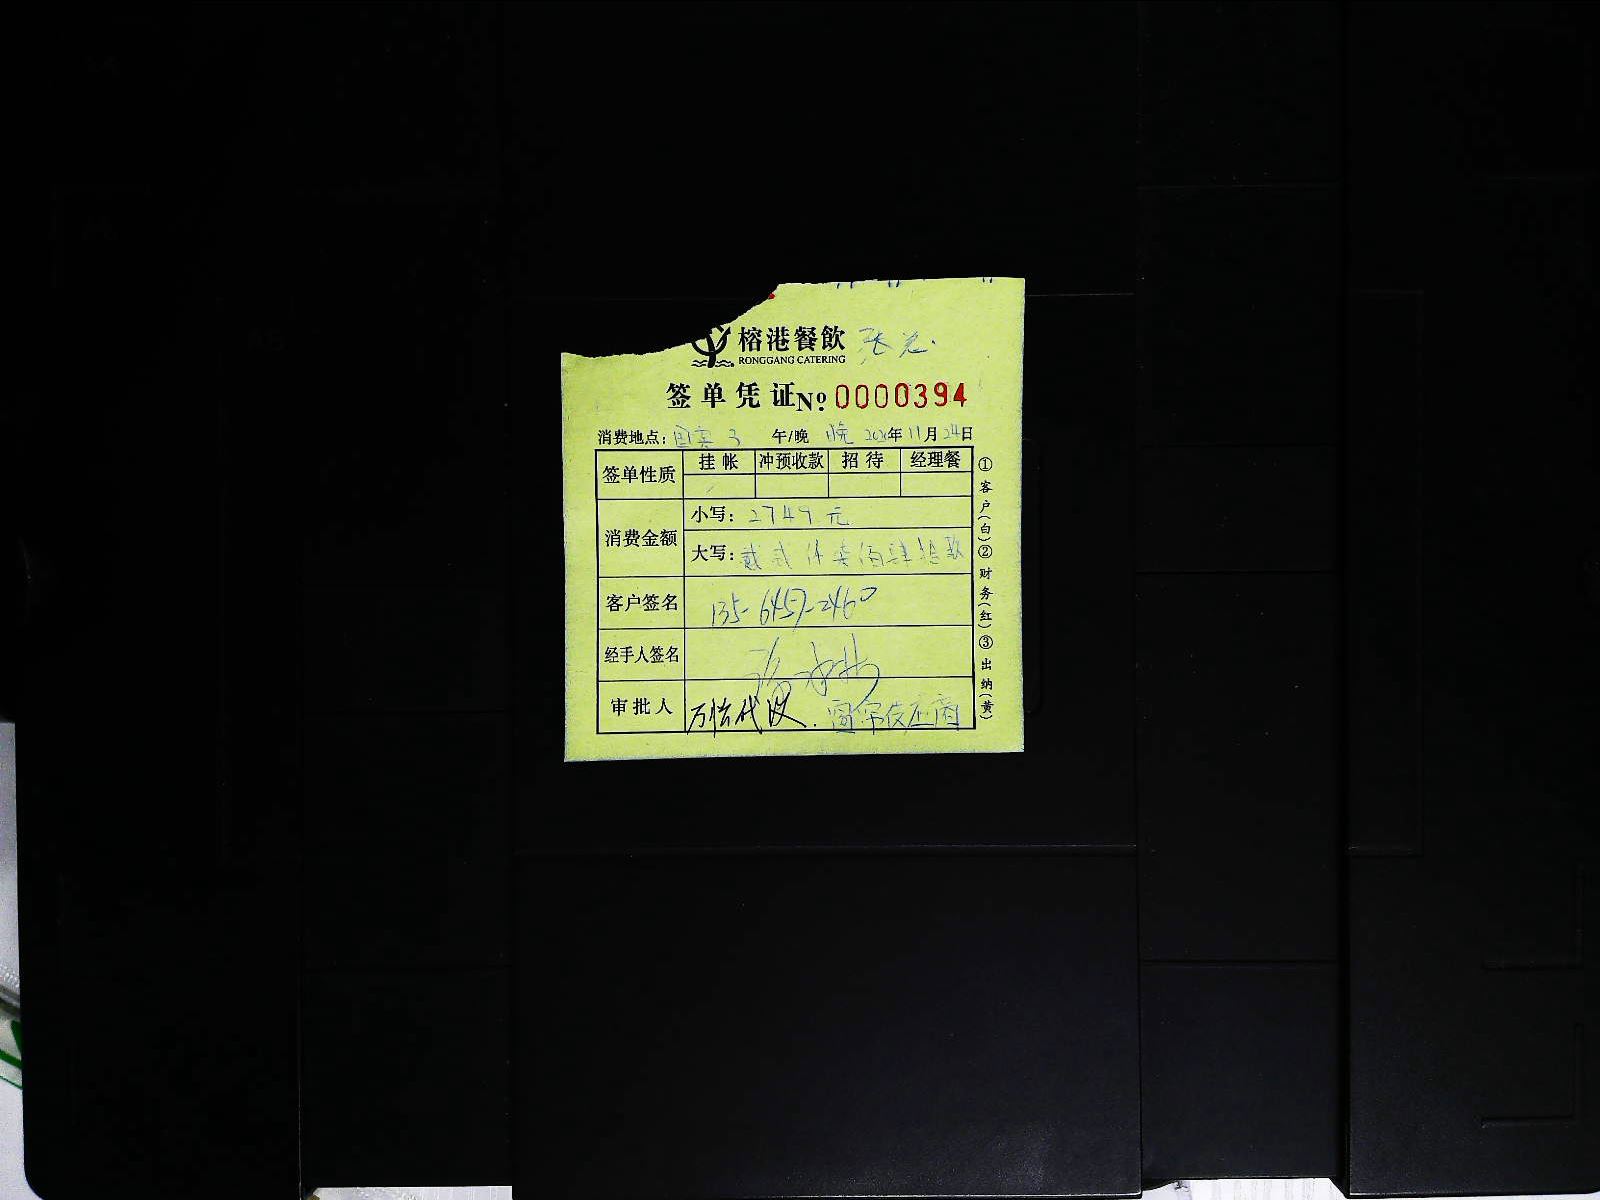 榕港餐飲 张总.
RONGGANG CATERING
签单凭证 № 0000394
消费地点: 国宾3 午/晚 晚 2020年11月24日
签单性质 挂帐 冲预收款 招待 经理餐
消费金额 小写: 2749元
大写: 贰仟柒佰肆拾玖
客户签名 135-6457-2460
经手人签名
审批人 万怡代收.
①客户(白)②财务(红)③出纳(黄)